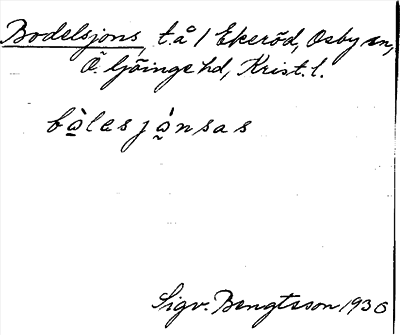 Bodelsjons, t.å / Ekeröd, Osby sn,
Ö. Göinge hd, Krist. l.
bò̲lesjó̰nsas
Sigv. Bengtsson 1936